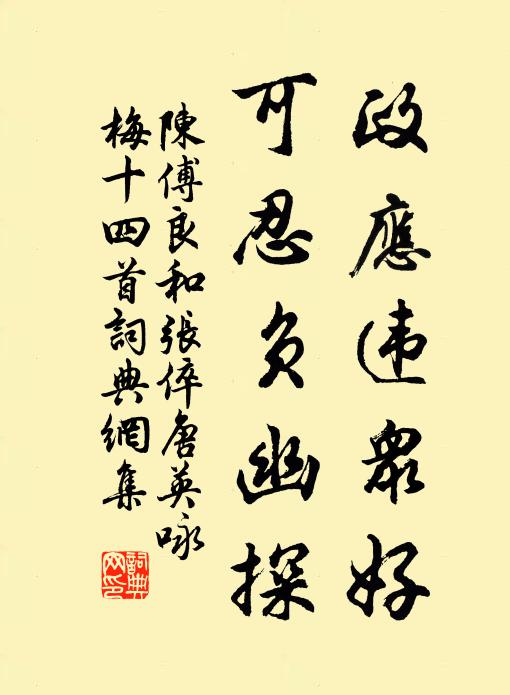 政應违眾好
可忍負幽探
陳傅良和張倅唐英咏
梅十四首詞典網集
詞典网印